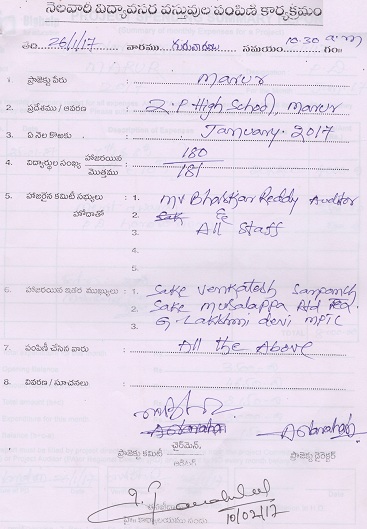 నెలవారి విద్యావసర వస్తువుల పంపిణి కార్యక్రమం
తేది. 26/1/17 వారము గురువారము సమయం 10.30 a.m గం॥
1. ప్రాజెక్టు పేరు : Marur
2. ప్రదేశము / ఆవరణ : Z.P High School, Marur
3. ఏ నెల కొరకు : January. 2017
4. విద్యార్థుల సంఖ్య హాజరయిన 180
మొత్తము 181
5. హాజరైన కమిటీ సభ్యులు : 1. Mr Bhaskar Reddy Auditor
హోదాతో 2. &
3. All Staff
6. హాజరయిన ఇతర ముఖ్యులు : 1. Sake Venkatesh Sarpanch
2. Sake Musalappa
3. G. Lakshmi devi MPTC
7. పంపిణీ చేసిన వారు : All the Above
8. వివరణ / సూచనలు :
ప్రాజెక్టు కమిటీ చైర్‌మెన్,
ఆడిటర్
ప్రాజెక్టు డైరెక్టర్
10/02/17